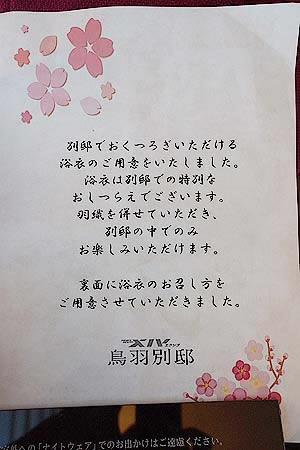 別邸でおくつろぎいただける
浴衣のご用意をいたしました。
浴衣は別邸での特別な
おしつらえでございます。
羽織を併せていただき、
別邸の中でのみ
お楽しみいただけます。
裏面に浴衣のお召し方を
ご用意させていただきました。
XIV
エクシブ
鳥羽別邸
への「ナイトウェア」でのお出かけはご遠慮ください。